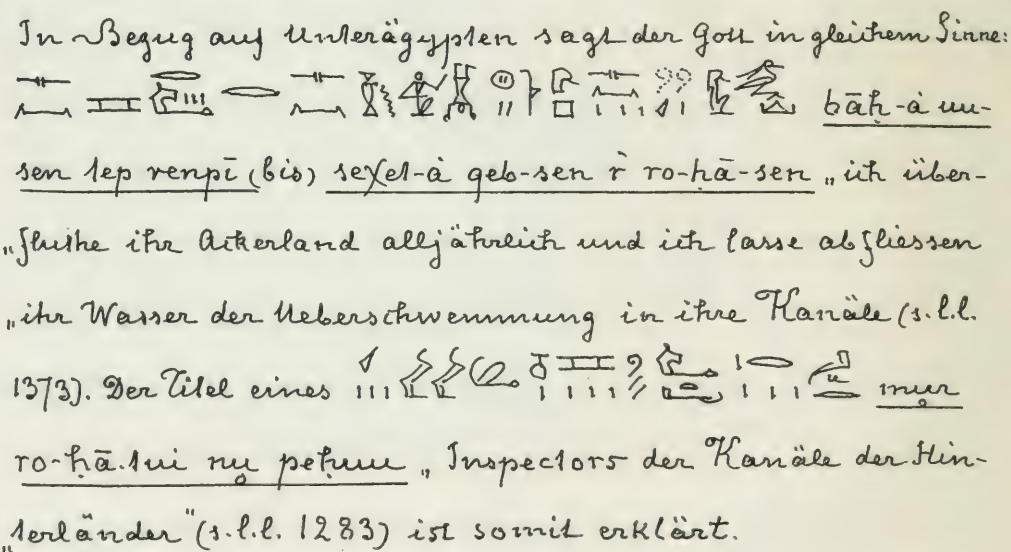 In Bezug auf Unterägypten sagt der Gott in gleichem Sinne:
bāḥ-à uu-
sen tep renpī (bis) seχet-à geb-sen r ro-ḥā-sen „ich über-
„fluthe ihr Ackerland alljährlich und ich lasse abfliessen
„ihr Wasser der Ueberschwemmung in ihre Kanäle (s. l. l.
1373). Der Titel eines mur
ro-ḥā.tui nu peḥuu „Inspectors der Kanäle der Hin-
„terländer" (s. l. l. 1283) ist somit erklärt.